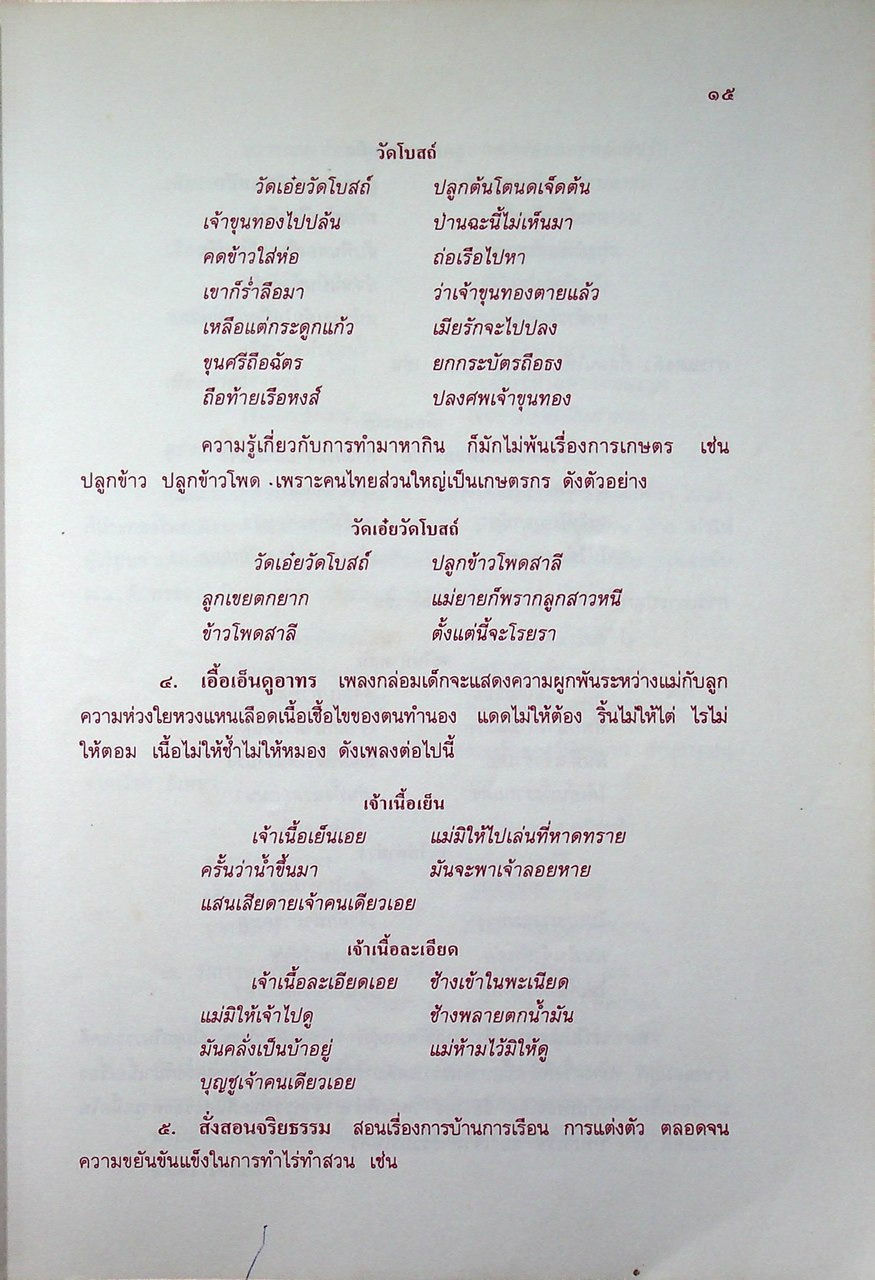 ๑๕
วัดโบสถ์
วัดเอ๋ยวัดโบสถ์ ปลูกต้นโตนดเจ็ดต้น
เจ้าขุนทองไปปล้น ป่านฉะนี้ไม่เห็นมา
คดข้าวใส่ห่อ ถ่อเรือไปหา
เขาก็ร่ำลือมา ว่าเจ้าขุนทองตายแล้ว
เหลือแต่กระดูกแก้ว เมียรักจะไปปลง
ขุนศรีถือฉัตร ยกกระบัตรถือธง
ถือท้ายเรือหงส์ ปลงศพเจ้าขุนทอง
ความรู้เกี่ยวกับการทำมาหากิน ก็มักไม่พ้นเรื่องการเกษตร เช่น
ปลูกข้าว ปลูกข้าวโพด เพราะคนไทยส่วนใหญ่เป็นเกษตรกร ดังตัวอย่าง
วัดเอ๋ยวัดโบสถ์
วัดเอ๋ยวัดโบสถ์ ปลูกข้าวโพดสาลี
ลูกเขยตกยาก แม่ยายก็พรากลูกสาวหนี
ข้าวโพดสาลี ตั้งแต่นี้จะโรยรา
๔. เอื้อเอ็นดูอาทร เพลงกล่อมเด็กจะแสดงความผูกพันระหว่างแม่กับลูก
ความห่วงใยหวงแหนเลือดเนื้อเชื้อไขของตนทำนอง แดดไม่ให้ต้อง ริ้นไม่ให้ไต่ ไรไม่
ให้ตอม เนื้อไม่ให้ช้ำไม่ให้หมอง ดังเพลงต่อไปนี้
เจ้าเนื้อเย็น
เจ้าเนื้อเย็นเอย แม่มิให้ไปเล่นที่หาดทราย
ครั้นว่าน้ำขึ้นมา มันจะพาเจ้าลอยหาย
แสนเสียดายเจ้าคนเดียวเอย
เจ้าเนื้อละเอียด
เจ้าเนื้อละเอียดเอย ช้างเข้าในพะเนียด
แม่มิให้เจ้าไปดู ช้างพลายตกน้ำมัน
มันคลั่งเป็นบ้าอยู่ แม่ห้ามไว้มิให้ดู
บุญชูเจ้าคนเดียวเอย
๕. สั่งสอนจริยธรรม สอนเรื่องการบ้านการเรือน การแต่งตัว ตลอดจน
ความขยันขันแข็งในการทำไร่ทำสวน เช่น